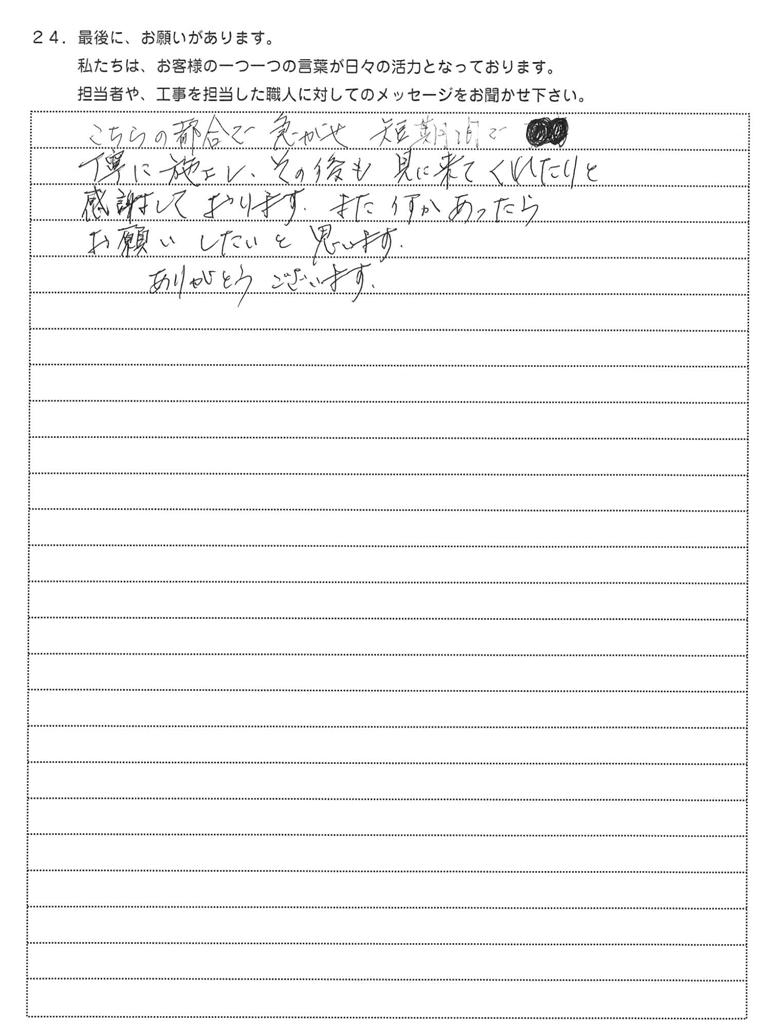 24. 最後に、お願いがあります。
私たちは、お客様の一つ一つの言葉が日々の活力となっております。
担当者や、工事を担当した職人に対してのメッセージをお聞かせ下さい。
こちらの都合で 急がせ 短期間で
丁寧に施工し、その後も 見に来てくれたりと
感謝しております. また何かあったら
お願い したいと 思います.
ありがとう ございます.